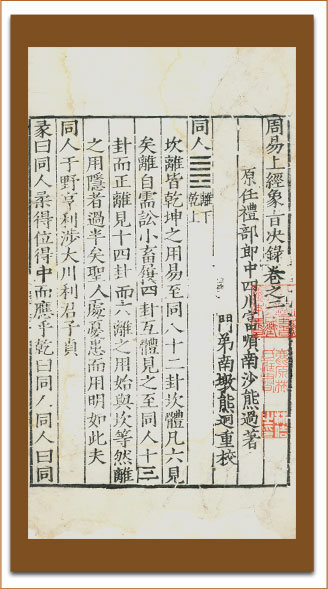 周易上經象旨決錄卷之二
原任禮部郎中四川富順南沙熊過著
門弟南墩熊迥重校
同人 離下乾上
坎離皆乾坤之用易至同人十二卦坎體凡六見
矣離自需訟小畜履四卦互體見之至同人十三
卦而正離見十四卦而六離之用始與坎等然離
之用隱者過半矣聖人處憂患而用明如此夫
同人于野亨利涉大川利君子貞
彖曰同人柔得位得中而應乎乾曰同人同人曰同